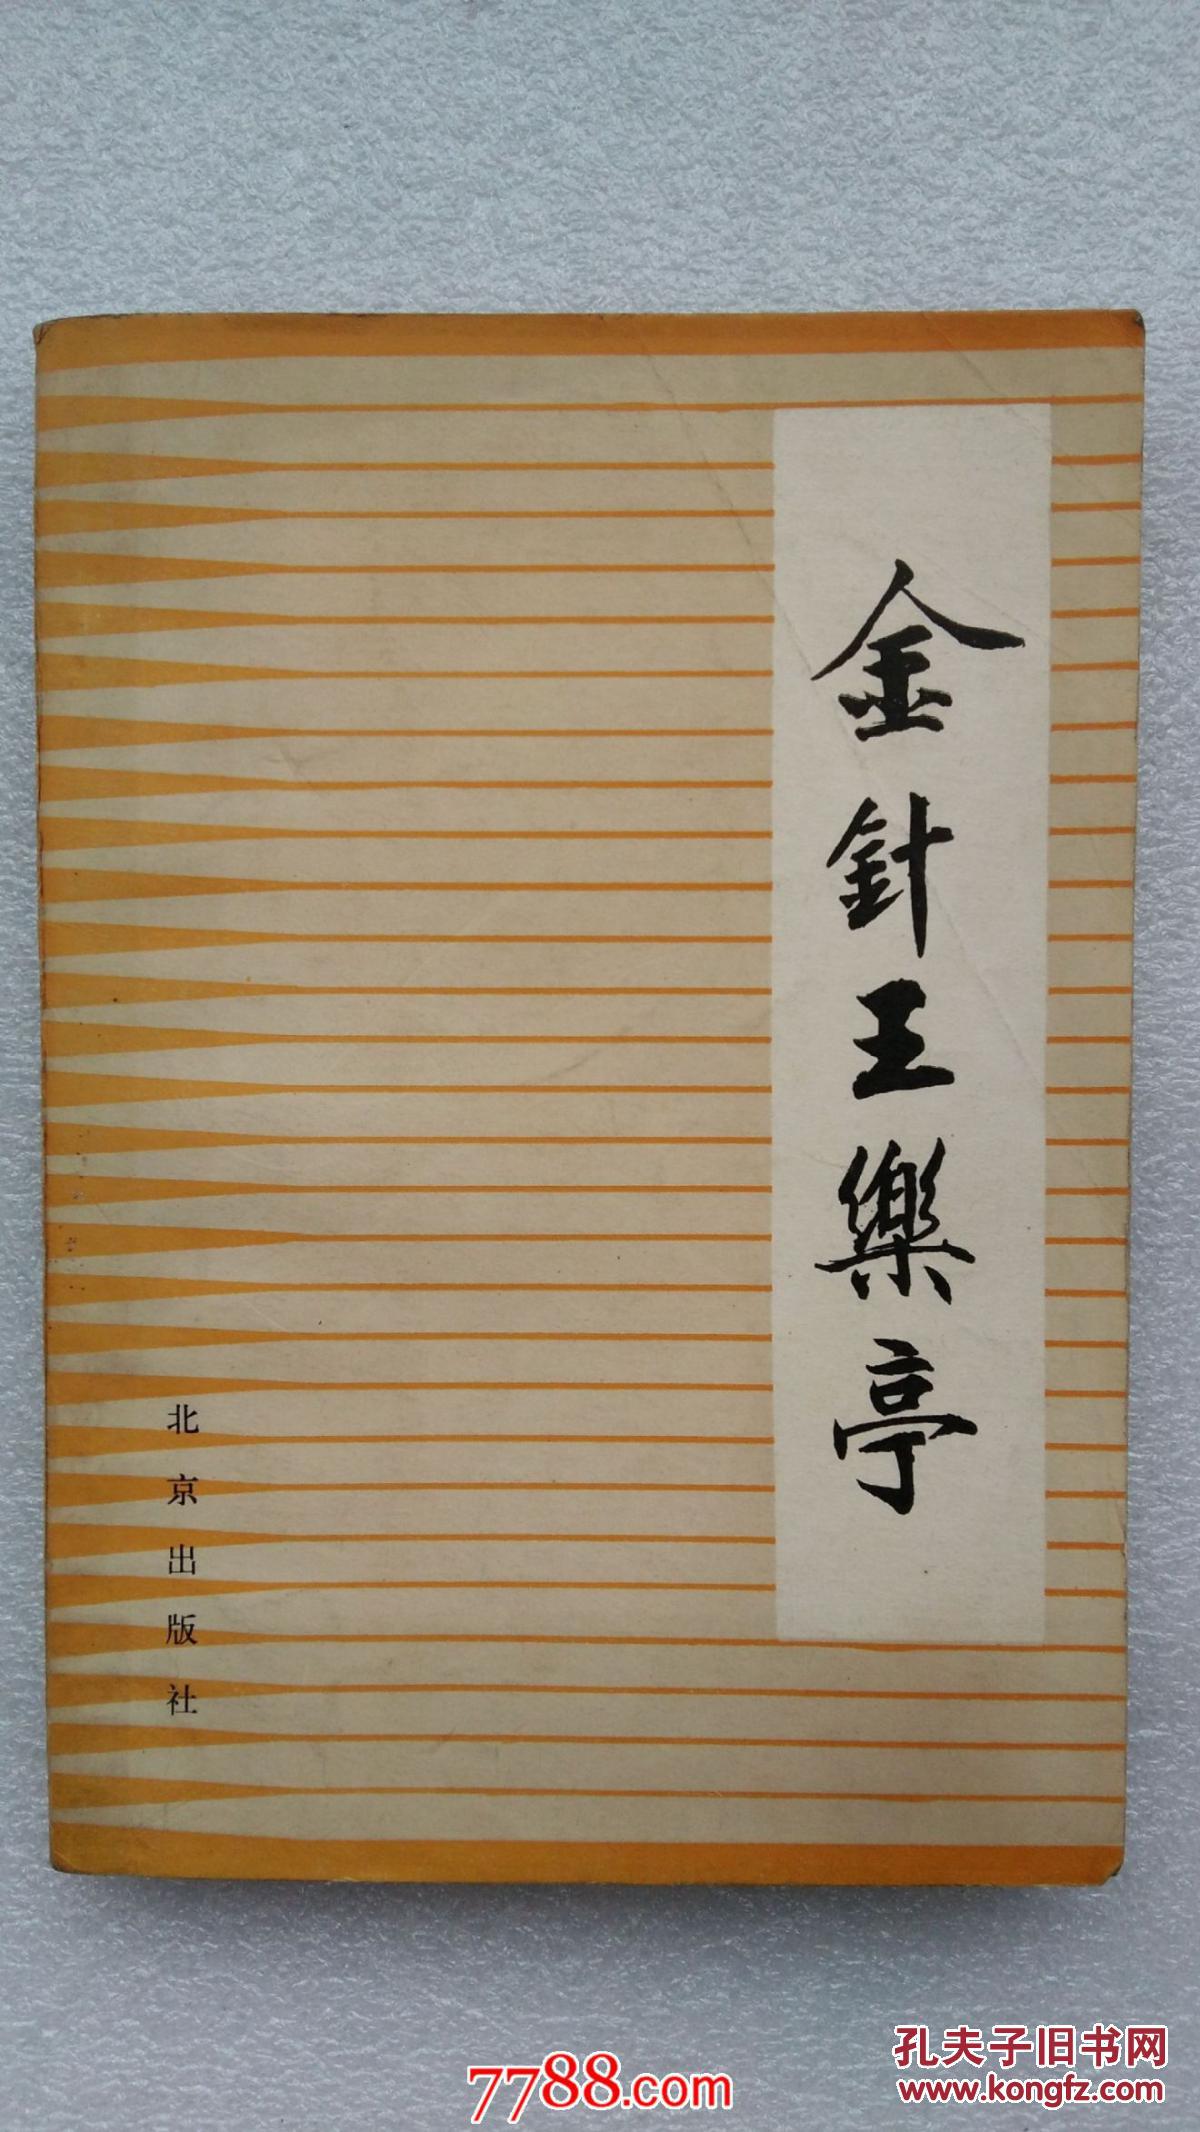 金針王樂亭
北京出版社
孔夫子旧书网
www.kongfz.com
7788.com